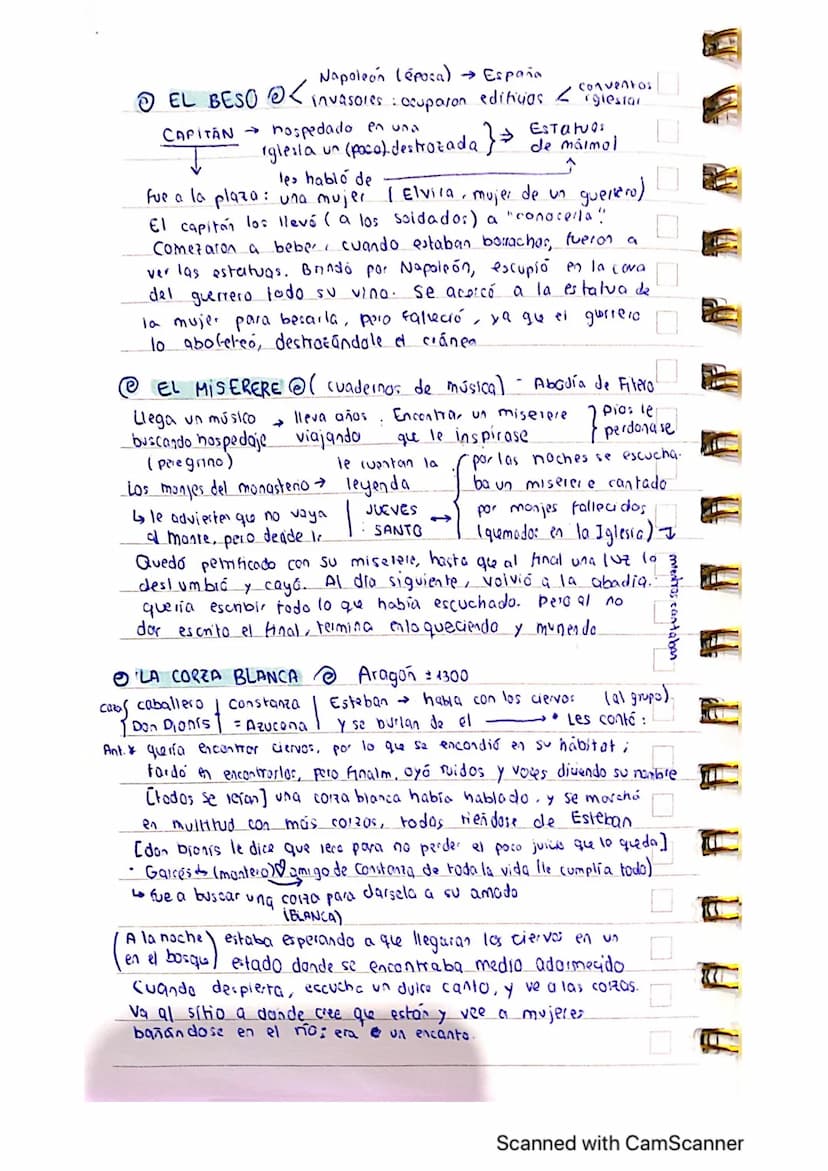 Napoleón (época) → España
EL BESO < invasores : ocuparon edificios < conventos iglesias
CAPITÁN → hospedado en una iglesia un (poco) destrozada } ⇒ ESTATUAS de mármol
les habló de
fue a la plaza : una mujer (Elvira, mujer de un guerrero)
El capitán los llevó (a los soldados) a "conocerla".
Comenzaron a beber, cuando estaban borrachos, fueron a
ver las estatuas. Brindó por Napoleón, escupió en la cara
del guerrero todo su vino. Se acercó a la estatua de
la mujer para besarla, pero falleció, ya que el guerrero
lo abofeteó, destrozándole el cráneo
EL MISERERE (cuadernos de música) - Abadía de Fitero
Llega un músico → lleva años . Encontrar un miserere } Dios le
buscando hospedaje viajando que le inspirase perdonase
(peregrino) le cuentan la { por las noches se escucha-
Los monjes del monasterio → leyenda ba un miserere cantado
↳ le advierten que no vaya | JUEVES por monjes fallecidos
al monte, pero decide ir | : SANTO ↔ (quemados en la Iglesia)
Quedó petrificado con su miserere, hasta que al final una luz lo
deslumbró y cayó. Al día siguiente, volvió a la abadía.
quería escribir todo lo que había escuchado. Pero al no
dar escrito el final, termina enloqueciendo y muriendo
mientras cantaban
LA CORZA BLANCA Aragón ± 1300
caballero | Constanza | Esteban → habla con los ciervos (al grupo)
Don Dionís | = Azucena | y se burlan de el → • Les contó :
Ant. * quería encontrar ciervos, por lo que se encondió en su hábitat ;
tardó en encontrarlos, pero finalm. oyó ruidos y voces diciendo su nombre
[todos se reían] una corza blanca había hablado . y se marchó
en multitud con más corzos, todos riéndose de Esteban
[don Dionís le dice que rece para no perder el poco juicio que lo queda]
· Garcés ↳ (montero) ♡ amigo de Constanza de toda la vida (le cumplía todo)
↳ fue a buscar una corza para darsela a su amada
(BLANCA)
(A la noche en el bosque) estaba esperando a que llegaran los ciervos en un
estado donde se encontraba medio adormecido
Cuando despierta, escucha un dulce canto, y ve a las corzas.
Va al sitio a donde cree que están y vee a mujeres
bañándose en el río; era un encanto.
Scanned with CamScanner